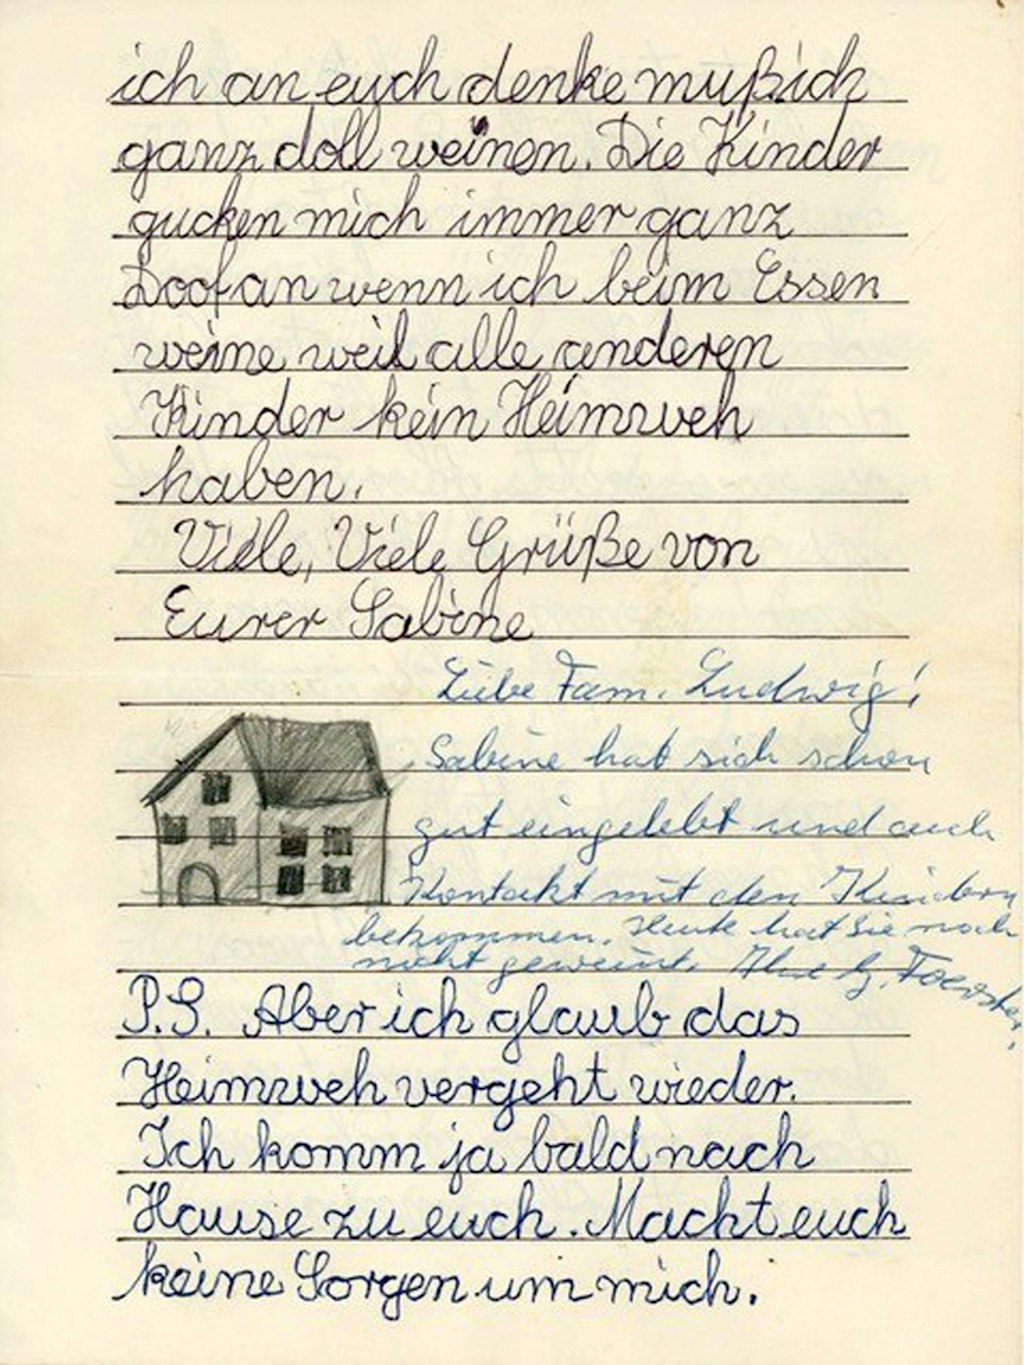 ich an euch denke muß ich
ganz doll weinen. Die Kinder
gucken mich immer ganz
Doof an wenn ich beim Essen
weine weil alle anderen
Kinder kein Heimweh
haben.
Viele, Viele Grüße von
Eurer Sabine
Liebe Fam. Ludwig!
Sabine hat sich schon
gut eingelebt und auch
Kontakt mit den Kindern
bekommen. Heute hat Sie noch
nicht geweint. Ihre G. Foerster.
P.S. Aber ich glaub das
Heimweh vergeht wieder.
Ich komm ja bald nach
Hause zu euch. Macht euch
keine Sorgen um mich.